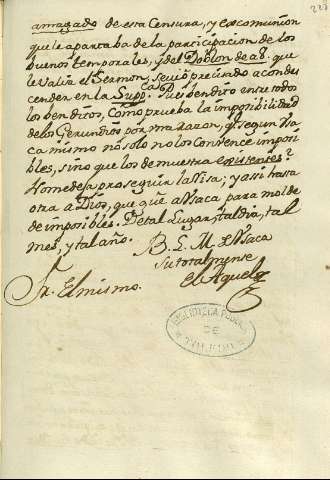 amagado de esta Censura, y excomunion
que le apartaba de la participacion de los
buenos temporales, y del Doblon de a8. que
le valia el Sermon, se vió precisado a condes-
cender en la Supp.ca Pues bendito entre todos
los benditos, Cómo prueba la imposibilidad
de los Gerundios por una razon, q.e segun Va
ca mismo nó solo no los convence imposi
bles, sino que los demuestra existentes?
No me dexa proseguir la Risa; y asi hasta
otra a Dios, que que a Vaca para molde
de imposibles. De tal Lugar, tal dia, tal
mes, y tal año.
B. L. M. de Vaca
Su totalmense
el Aquel
Sr. El mismo.
BIBLIOTECA PUBLICA
DE